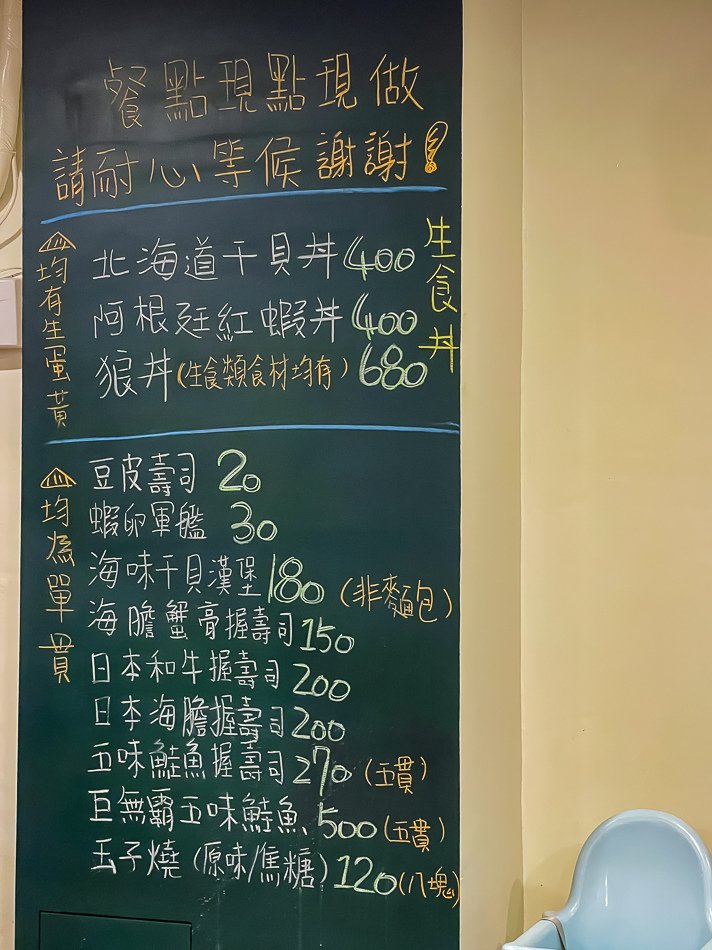 餐點現點現做
請耐心等候謝謝!
均有生蛋黃
生食丼
北海道干貝丼400
阿根廷紅蝦丼400
狠丼(生食類食材均有)680
均為單貫
豆皮壽司 20
蝦卵軍艦 30
海味干貝漢堡180 (非麵包)
海膽蟹膏握壽司150
日本和牛握壽司200
日本海膽握壽司200
五味鮭魚握壽司270 (五貫)
巨無霸五味鮭魚500(五貫)
玉子燒(原味/焦糖)120(八塊)